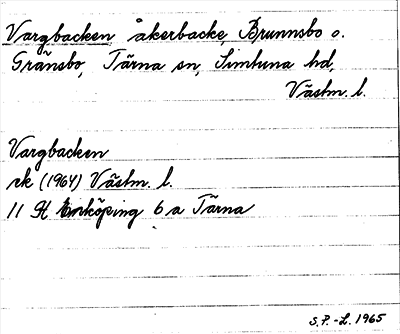 Vargbacken åkerbacke, Brunnsbo o.
Gränsbo, Tärna sn, Simtuna hd,
Västm. l.
Vargbacken
ek (1964) Västm. l.
11 H Enköping 6 a Tärna
S.P.-L. 1965